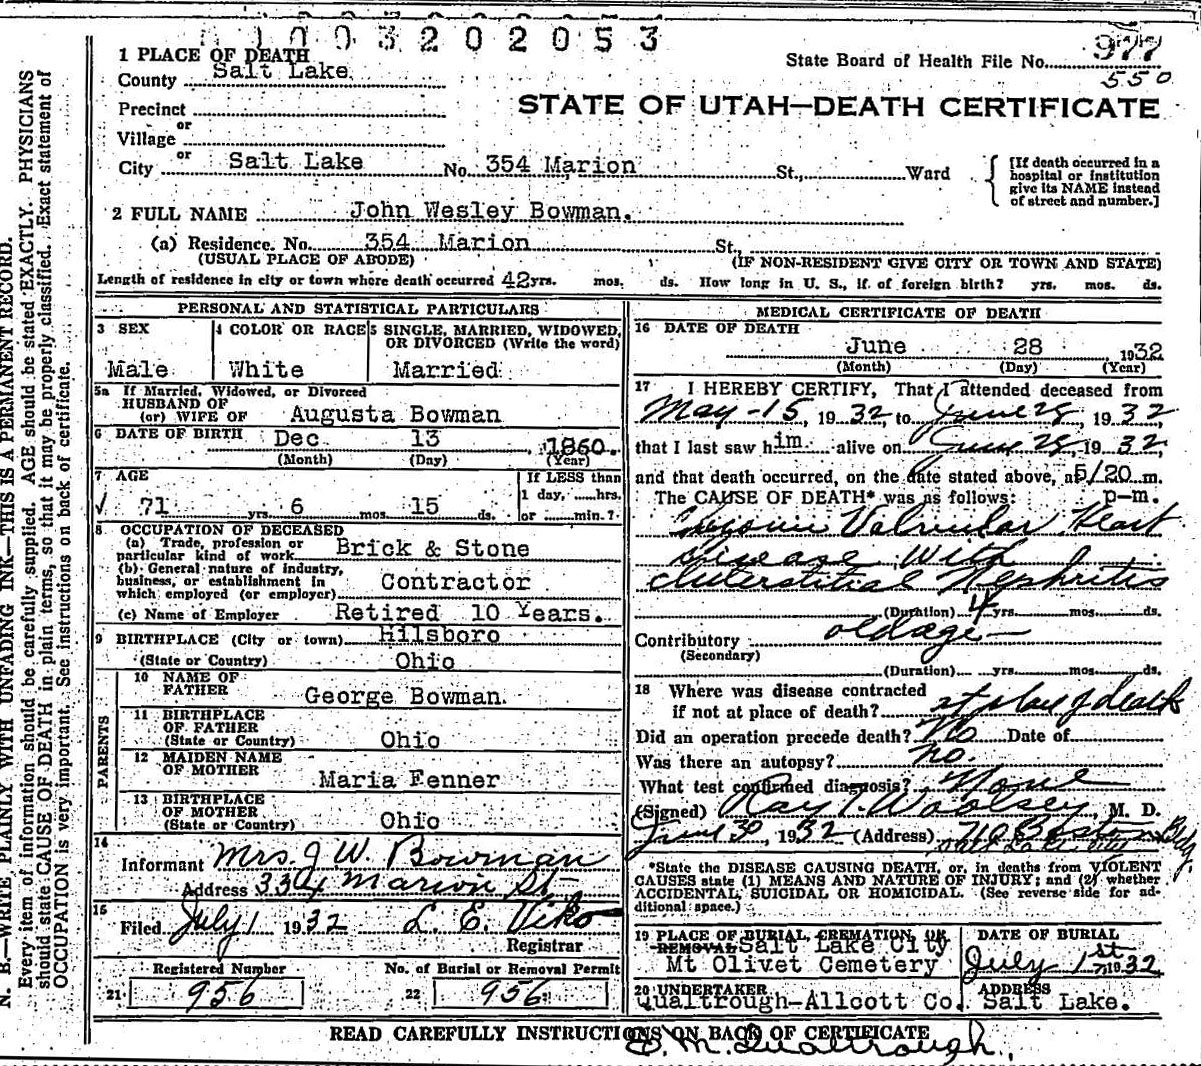 1003202053
1 PLACE OF DEATH
County Salt Lake
State Board of Health File No. 977
550
Precinct
or
Village
or
City Salt Lake No. 354 Marion St., Ward
STATE OF UTAH—DEATH CERTIFICATE
[If death occurred in a
hospital or institution
give its NAME instead
of street and number.]
2 FULL NAME John Wesley Bowman.
(a) Residence. No. 354 Marion St.
(USUAL PLACE OF ABODE) (IF NON-RESIDENT GIVE CITY OR TOWN AND STATE)
Length of residence in city or town where death occurred 42 yrs. mos. ds. How long in U. S., if of foreign birth? yrs. mos. ds.
PERSONAL AND STATISTICAL PARTICULARS
3 SEX
Male
4 COLOR OR RACE
White
5 SINGLE, MARRIED, WIDOWED,
OR DIVORCED (Write the word)
Married
5a If Married, Widowed, or Divorced
HUSBAND OF
(or) WIFE OF Augusta Bowman
6 DATE OF BIRTH Dec 13, 1860.
(Month) (Day) (Year)
7 AGE
√ 71 yrs. 6 mos. 15 ds.
If LESS than
1 day, ......hrs.
or ......min.?
8 OCCUPATION OF DECEASED
(a) Trade, profession or
particular kind of work Brick & Stone
(b) General nature of industry,
business, or establishment in
which employed (or employer) Contractor
(c) Name of Employer Retired 10 Years.
9 BIRTHPLACE (City or town) Hilsboro
(State or Country) Ohio
PARENTS
10 NAME OF
FATHER George Bowman.
11 BIRTHPLACE
OF FATHER
(State or Country) Ohio
12 MAIDEN NAME
OF MOTHER Maria Fenner
13 BIRTHPLACE
OF MOTHER
(State or Country) Ohio
14
Informant Mrs. J W. Bowman
Address 334 Marion St.
15
Filed July 1 1932 L. E. Viko
Registrar
Registered Number
21 956
No. of Burial or Removal Permit
22 956
MEDICAL CERTIFICATE OF DEATH
16 DATE OF DEATH
June 28, 1932
(Month) (Day) (Year)
17 I HEREBY CERTIFY, That I attended deceased from
May-15, 1932, to June 28, 1932,
that I last saw him alive on June 28, 1932,
and that death occurred, on the date stated above, at 5/20 m.
The CAUSE OF DEATH* was as follows: p-m.
Chronic Valvular Heart
disease with
Interstitial Nephritis
(Duration) 4 yrs. mos. ds.
Contributory old age
(Secondary)
(Duration) yrs. mos. ds.
18 Where was disease contracted
if not at place of death? at place of death
Did an operation precede death? No Date of
Was there an autopsy? no.
What test confirmed diagnosis? None
(Signed) Ray T. Woolsey, M. D.
June 30, 1932 (Address) 710 Boston Bldg
Salt Lake City
*State the DISEASE CAUSING DEATH, or, in deaths from VIOLENT
CAUSES state (1) MEANS AND NATURE OF INJURY; and (2) whether
ACCIDENTAL, SUICIDAL OR HOMICIDAL. (See reverse side for ad-
ditional space.)
19 PLACE OF BURIAL, CREMATION, OR
REMOVAL Salt Lake City
Mt Olivet Cemetery
DATE OF BURIAL
July 1st 1932
20 UNDERTAKER
Qualtrough-Allcott Co.
ADDRESS
Salt Lake.
READ CAREFULLY INSTRUCTIONS ON BACK OF CERTIFICATE
M. Qualtrough.
N. B.—WRITE PLAINLY WITH UNFADING INK—THIS IS A PERMANENT RECORD.
Every item of information should be carefully supplied. AGE should be stated EXACTLY. PHYSICIANS
should state CAUSE OF DEATH in plain terms, so that it may be properly classified. Exact statement of
OCCUPATION is very important. See instructions on back of certificate.